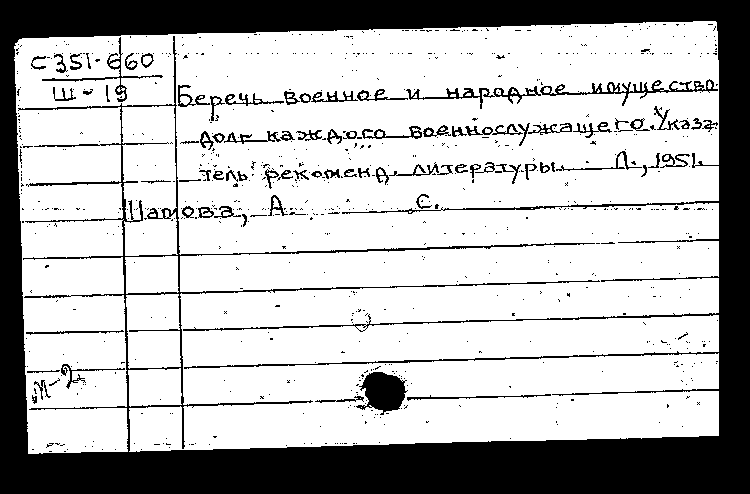 С351-660
Ш-19
Беречь военное и народное имущество
долг каждого военнослужащего. Указа
тель рекоменд. литературы. Л., 1951.
Шапова, А. С.
М-2